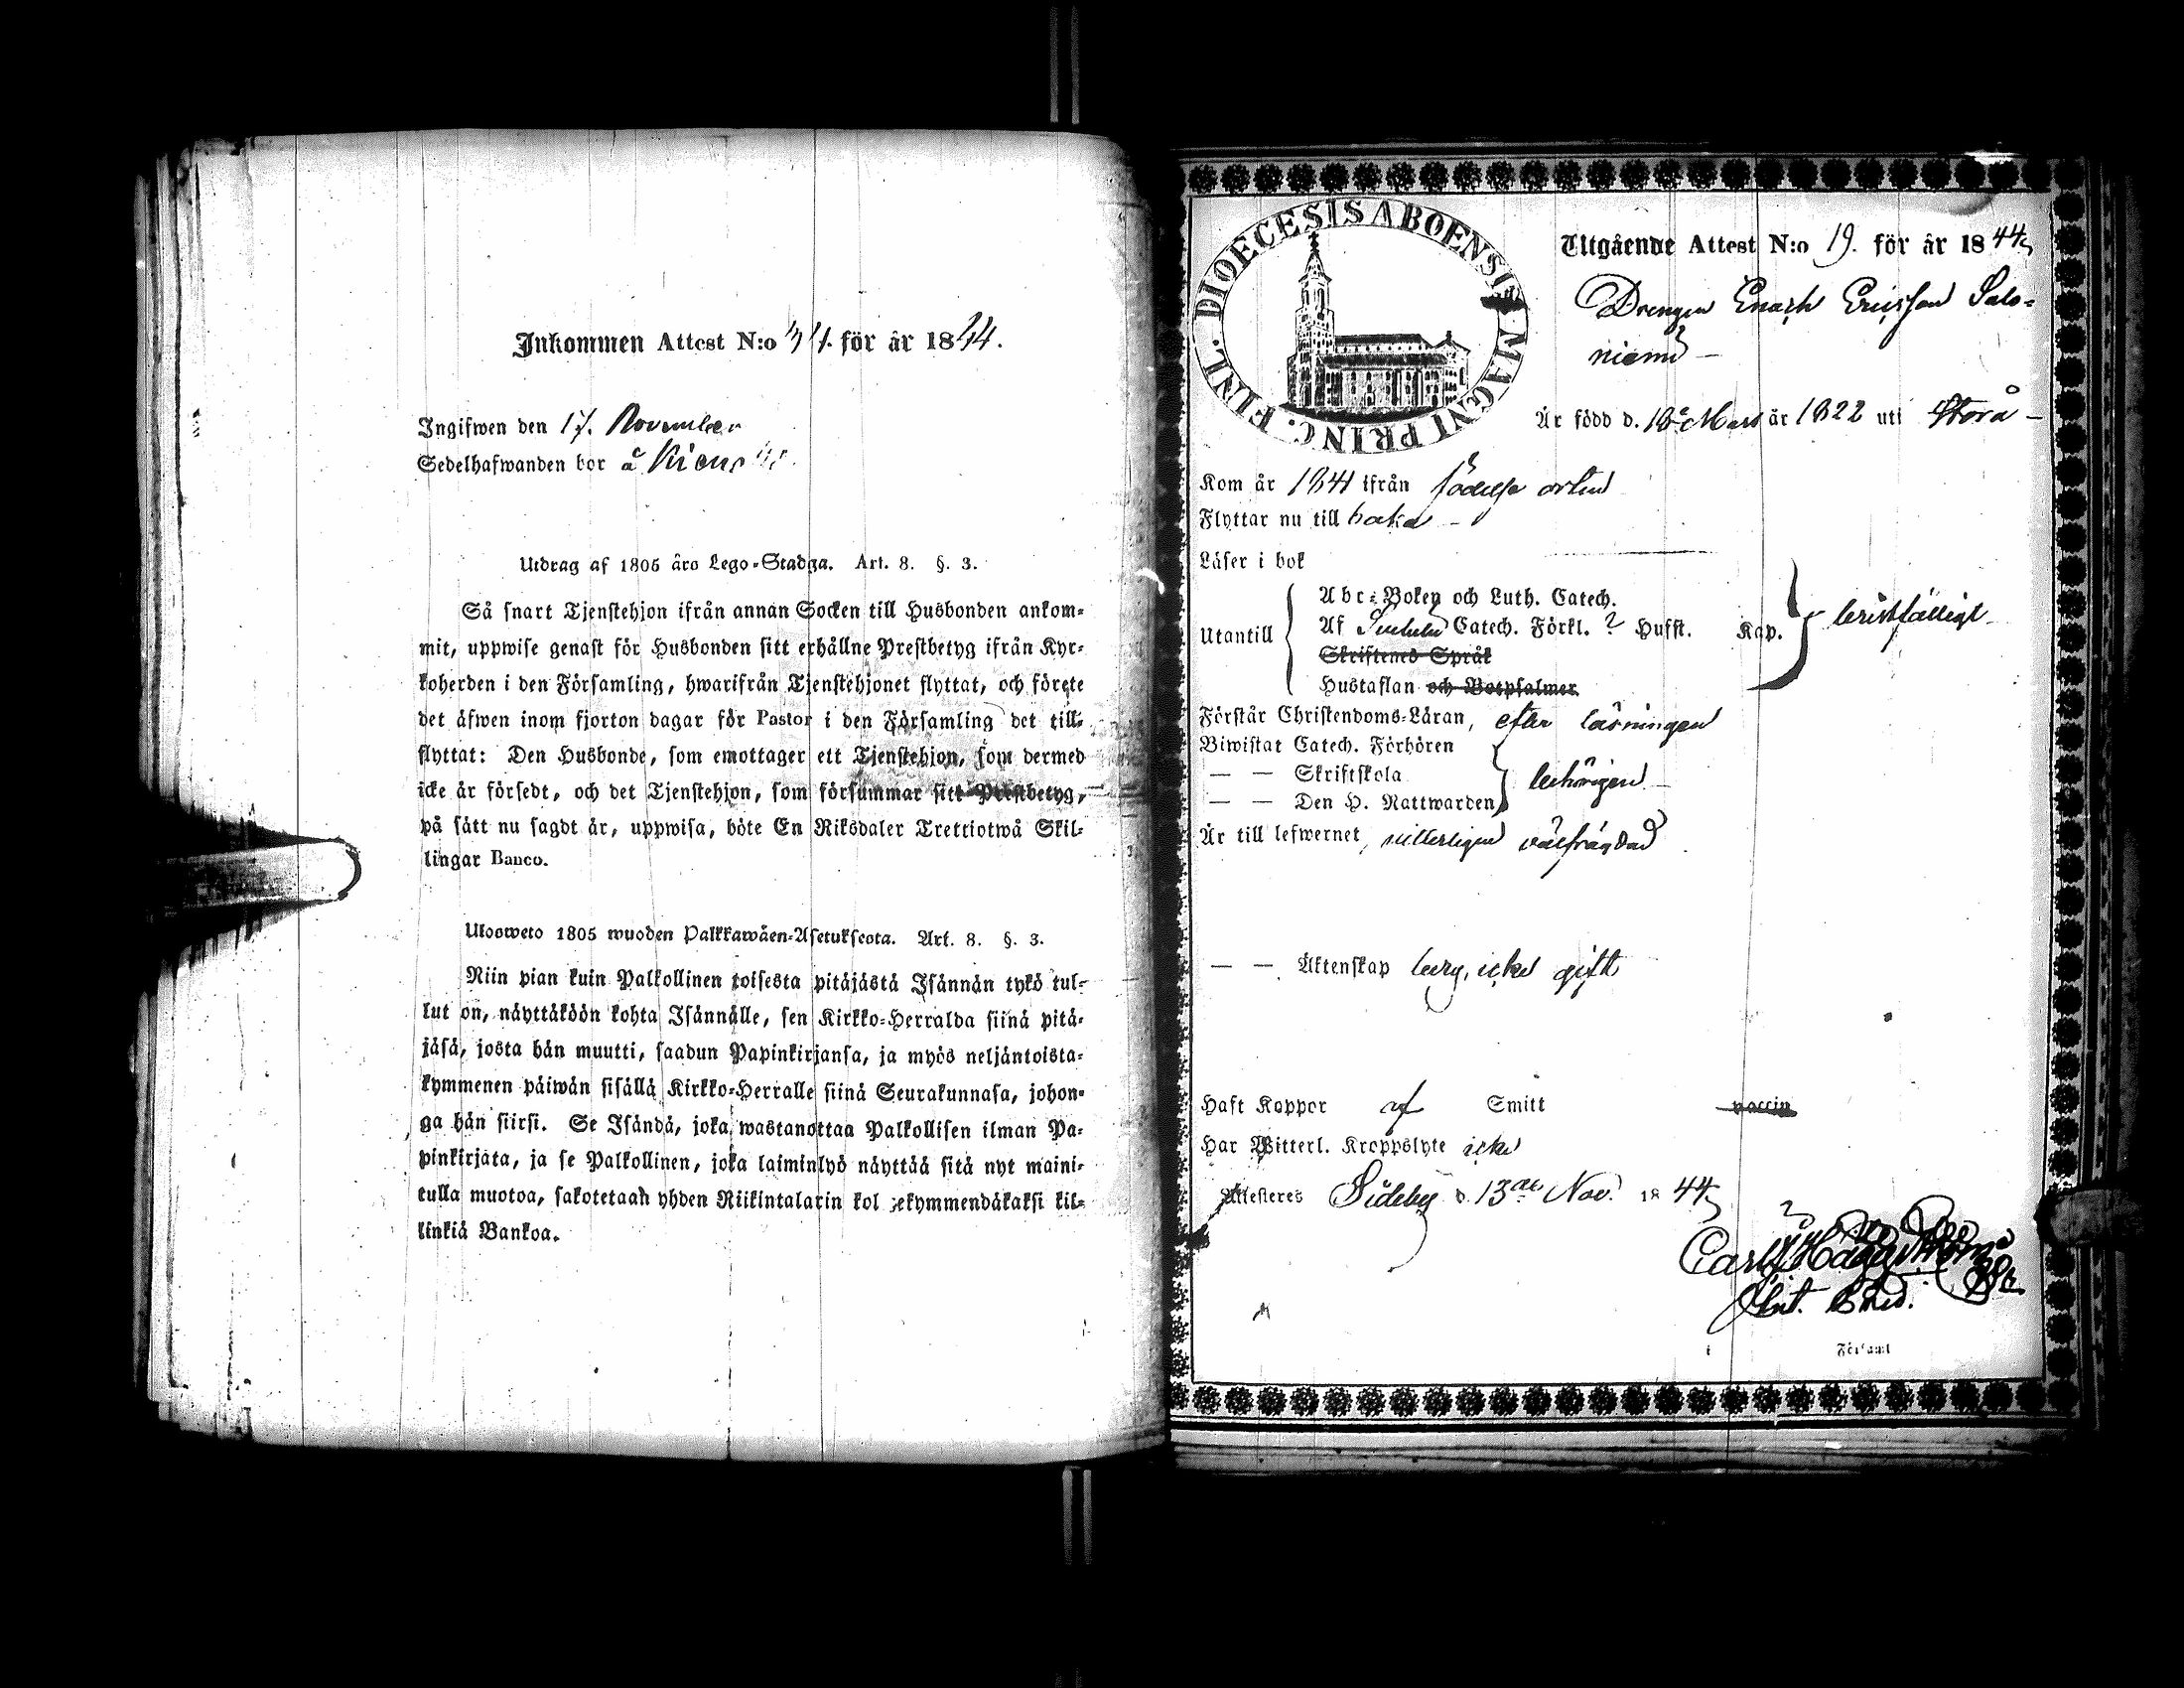 Inkommen Attest N:o för år 1844.
Ingifwen den 17. November
Sedelhafwanden bor å
Utdrag af 1805 års Lego-Stadga. Art. 8. §. 3.
Så snart Tjenstehjon ifrån annan Socken till Husbonden ankom-
mit, uppwise genast för Husbonden sitt erhållne Prestbetyg ifrån Kyr-
koherden i den Församling, hwarifrån Tjenstehjonet flyttat, och förete
det äfwen inom fjorton dagar för Pastor i den Församling det till-
flyttat: Den Husbonde, som emottager ett Tjenstehjon, som dermed
icke är försedt, och det Tjenstehjon, som försummar sitt Prestbetyg,
på sätt nu sagdt är, uppwisa, böte En Riksdaler Trettiotwå Skil-
lingar Banco.
Ulosweto 1805 wuoden Palkkawäen-Asetuksesta. Art. 8. §. 3.
Niin pian kuin Palkollinen toisesta pitäjästä Isännän tykö tul-
lut on, näyttäköön kohta Isännälle, sen Kirkko-Herralda siinä pitä-
jäsä, josta hän muutti, saadun Papinkirjansa, ja myös neljäntoista-
kymmenen päiwän sisällä Kirkko-Herralle siinä Seurakunnasa, johon-
ga hän siirsi. Se Isändä, joka wastanottaa Palkollisen ilman Pa-
pinkirjata, ja se Palkollinen, joka laiminlyö näyttää sitä nyt maini-
tulla muotoa, sakotetaan yhden Riikintalarin kol ekymmendäkaksi kil-
linkiä Bankoa.
DIOECESIS ABOENSIS MAGNI PRINC. FINL.
Utgående Attest N:o 19. för år 1844
Drengen Enoch Ericsson Salo-
niemi –
Är född d. 18 Mars år 1822 uti Storå –
Kom år 1841 ifrån födelse orten
Flyttar nu till baka –
Läser i bok
Abc-Boken och Luth. Catech.
Utantill Af Catech. Förkl. ? Husst. Kap. bristfälligt
Skriftenes Språk
Hustaflan och Botpsalmer
Förstår Christendoms-Läran, efter läsningen
Biwistat Catech. Förhören
— — Skriftskola behörigen –
— — Den H. Nattwarden
Är till lefwernet, witterligen wälfrägdad
— — Äktenskap ledig, icke gift
Haft Koppor af Smitt vaccin
Har Witterl. Kroppslyte icke
Attesteres Sideby d. 13de Nov. 1844
Carl Häggström
i Församl